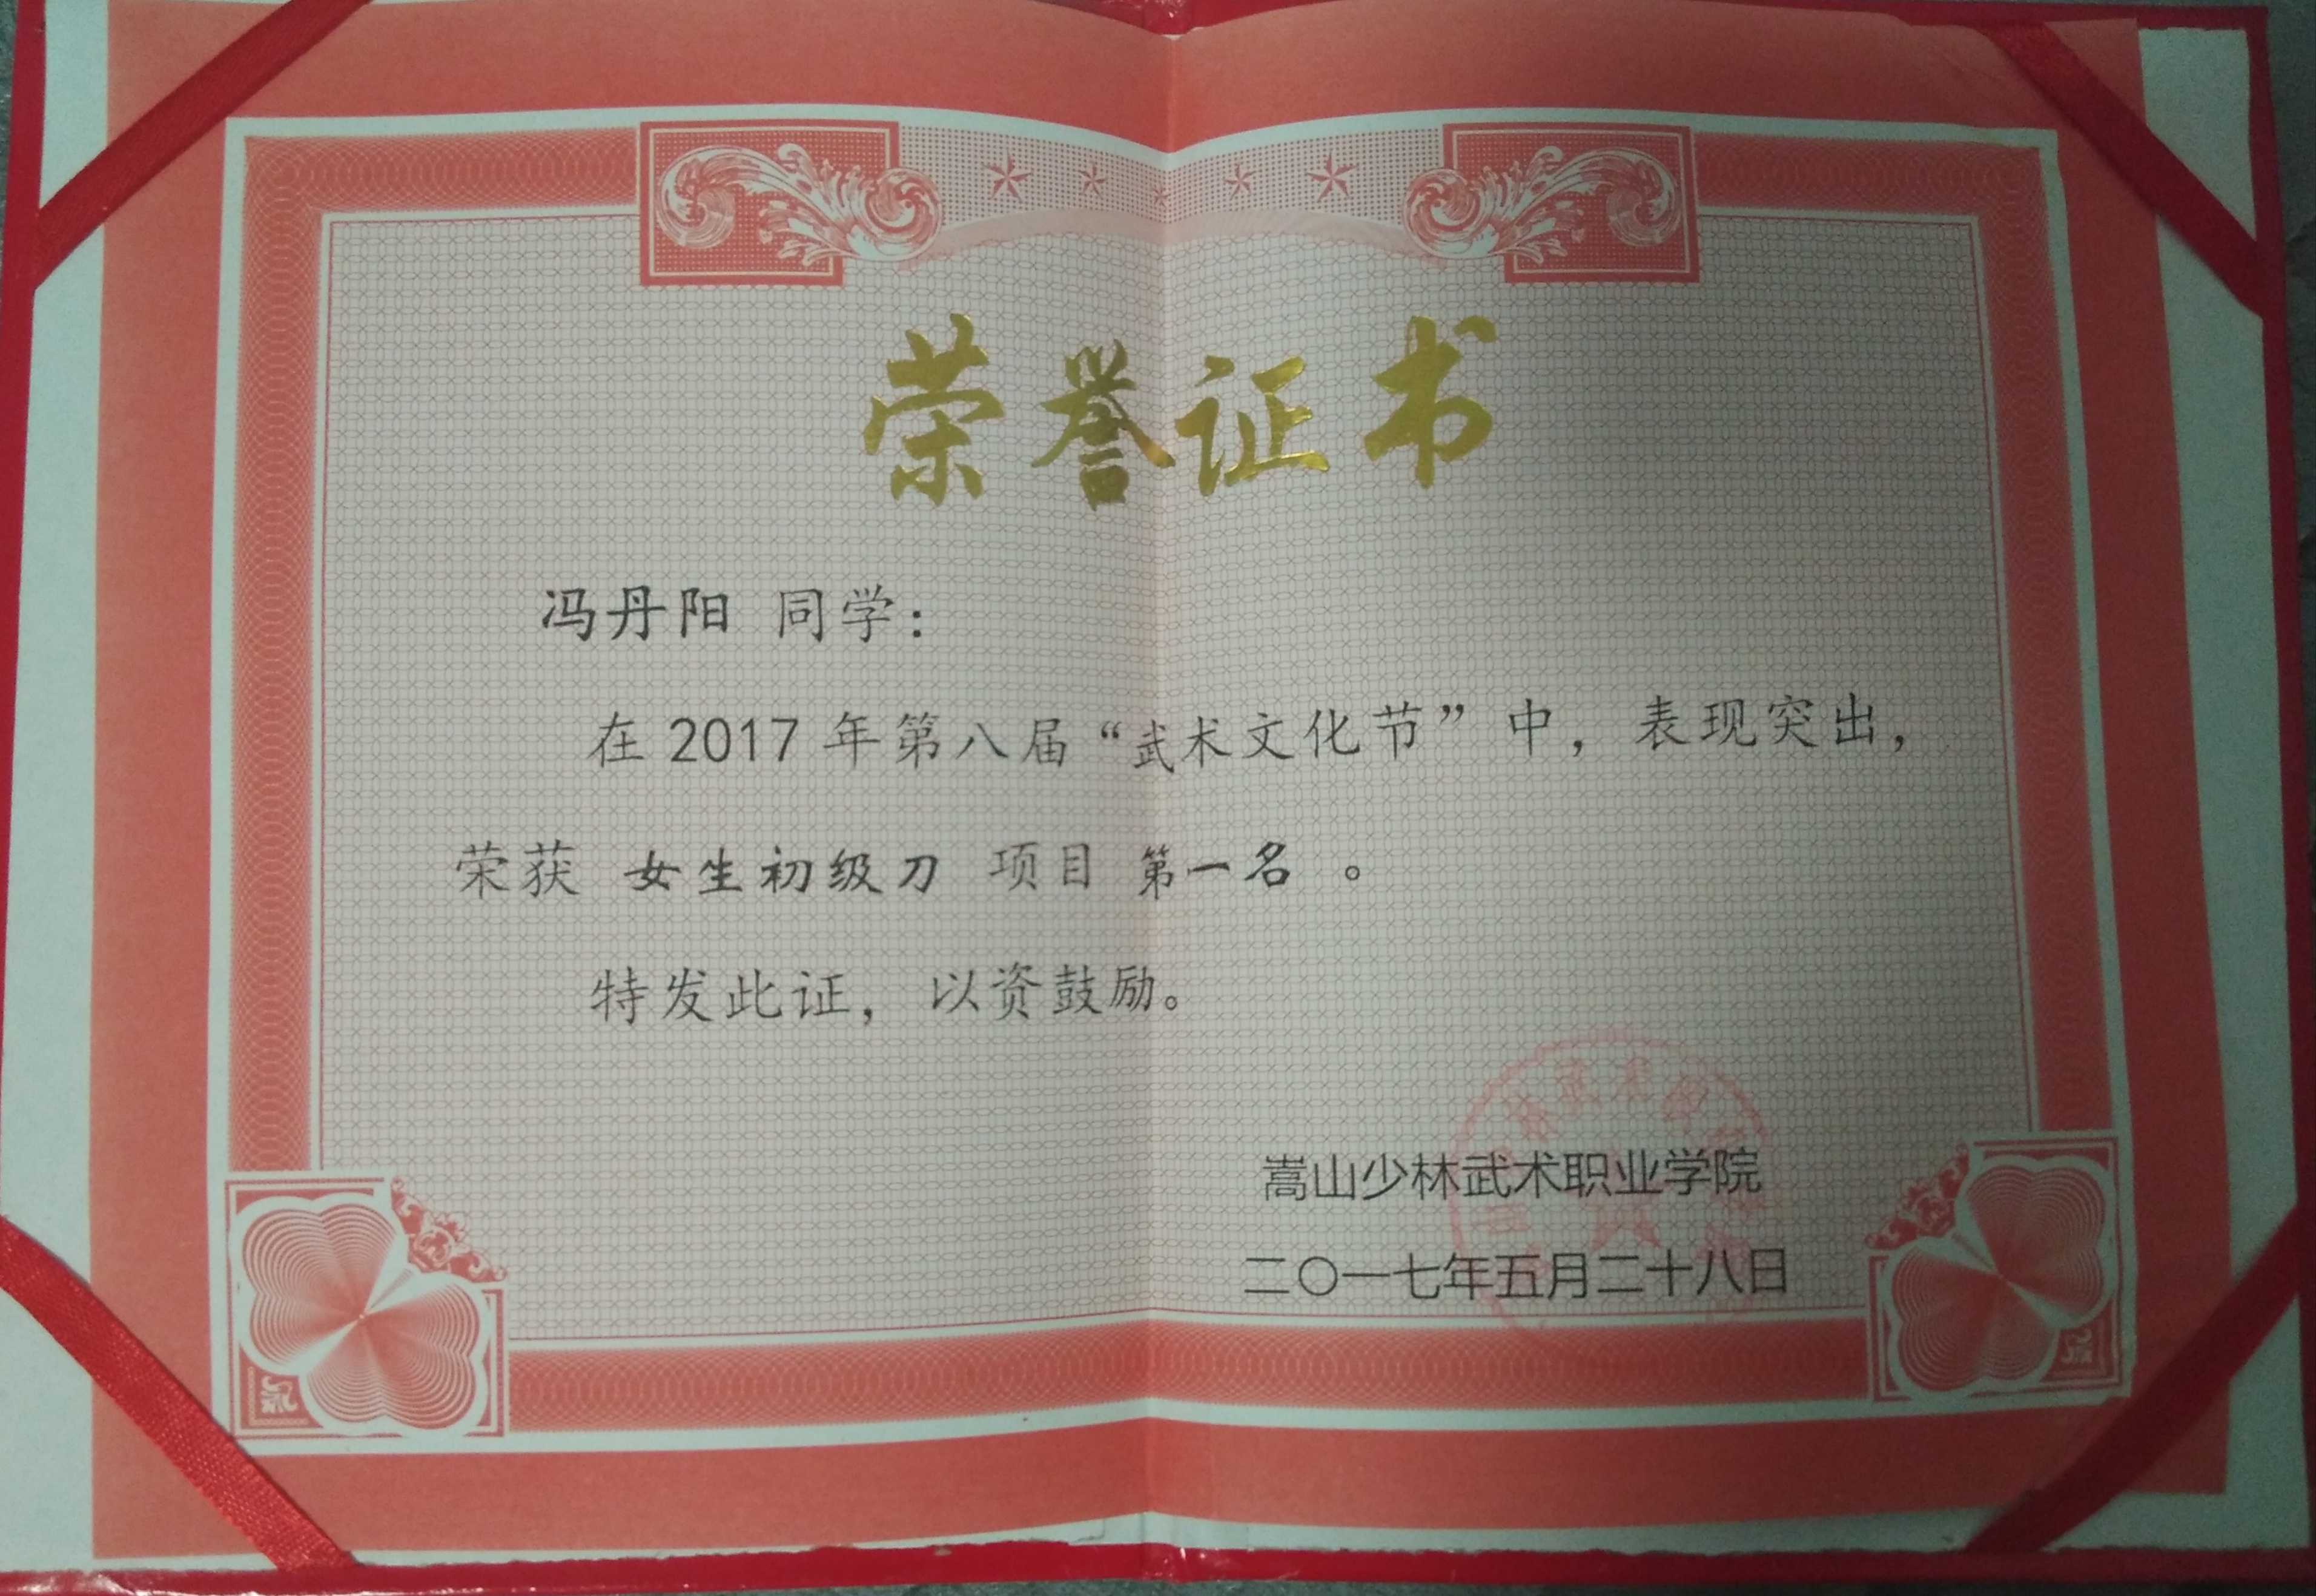 荣誉证书
冯丹阳 同学：
在 2017 年第八届“武术文化节”中，表现突出，
荣获 女生初级刀 项目 第一名 。
特发此证，以资鼓励。
嵩山少林武术职业学院
二〇一七年五月二十八日